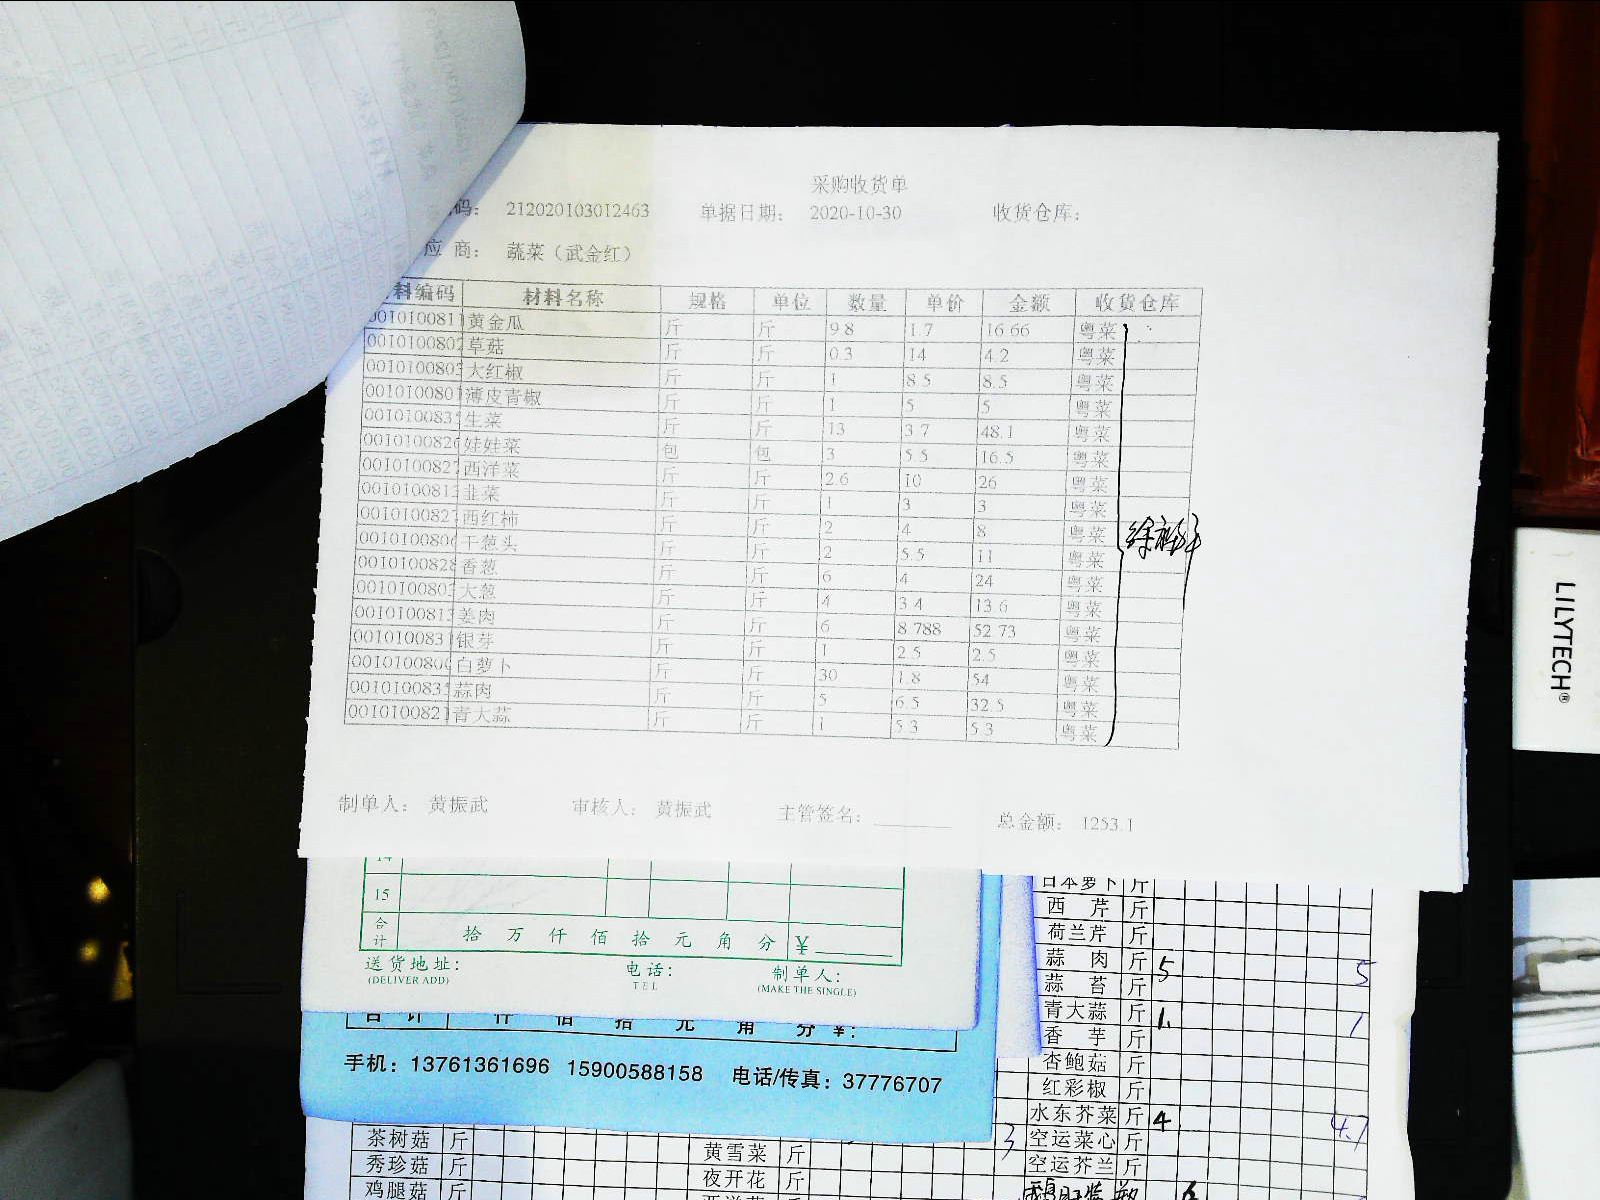 采购收货单
码： 212020103012463 单据日期： 2020-10-30 收货仓库：
应 商： 蔬菜（武金红）
料编码 材料名称 规格 单位 数量 单价 金额 收货仓库
0010100811 黄金瓜 斤 斤 9.8 1.7 16.66 粤菜
001010080 草菇 斤 斤 0.3 14 4.2 粤菜
001010080 大红椒 斤 斤 1 8.5 8.5 粤菜
001010080 薄皮青椒 斤 斤 1 5 5 粤菜
001010083 生菜 斤 斤 13 3.7 48.1 粤菜
001010082 娃娃菜 包 包 3 5.5 16.5 粤菜
001010082 西洋菜 斤 斤 2.6 10 26 粤菜
001010081 韭菜 斤 斤 1 3 3 粤菜
001010082 西红柿 斤 斤 2 4 8 粤菜
001010080 干葱头 斤 斤 2 5.5 11 粤菜
001010082 香葱 斤 斤 6 4 24 粤菜
001010080 大葱 斤 斤 4 3.4 13.6 粤菜
001010081 姜肉 斤 斤 6 8.788 52.73 粤菜
001010083 银芽 斤 斤 1 2.5 2.5 粤菜
001010080 白萝卜 斤 斤 30 1.8 54 粤菜
001010083 蒜肉 斤 斤 5 6.5 32.5 粤菜
001010082 青大蒜 斤 斤 1 5.3 5.3 粤菜
制单人： 黄振武 审核人： 黄振武 主管签名： 总金额： 1253.1
14
15
合计 拾 万 仟 佰 拾 元 角 分 ¥
送货地址： 电话： 制单人：
(DELIVER ADD) TEL (MAKE THE SINGLE)
合 计 仟 佰 拾 元 角 分 ¥:
手机：13761361696 15900588158 电话/传真：37776707
日本萝卜 斤
西 芹 斤
荷兰芹 斤
蒜 肉 斤 5 5
蒜 苔 斤
青大蒜 斤 1. 1
香 芋 斤
杏鲍菇 斤
红彩椒 斤
水东芥菜 斤 4 4.7
空运菜心 斤
空运芥兰 斤
茶树菇 斤
秀珍菇 斤
鸡腿菇 斤
黄雪菜 斤 3
夜开花 斤
LILYTECH®